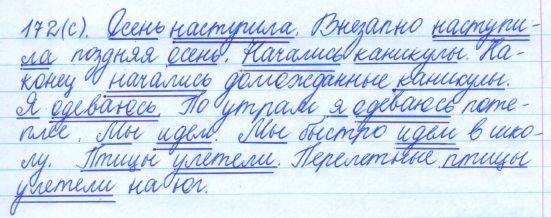 172(с). Осень наступила. Внезапно наступи-
ла поздняя осень. Начались каникулы. На-
конец начались долгожданные каникулы.
Я одеваюсь. По утрам я одеваюсь поте-
плее. Мы идем. Мы быстро идем в шко-
лу. Птицы улетели. Перелетные птицы
улетели на юг.